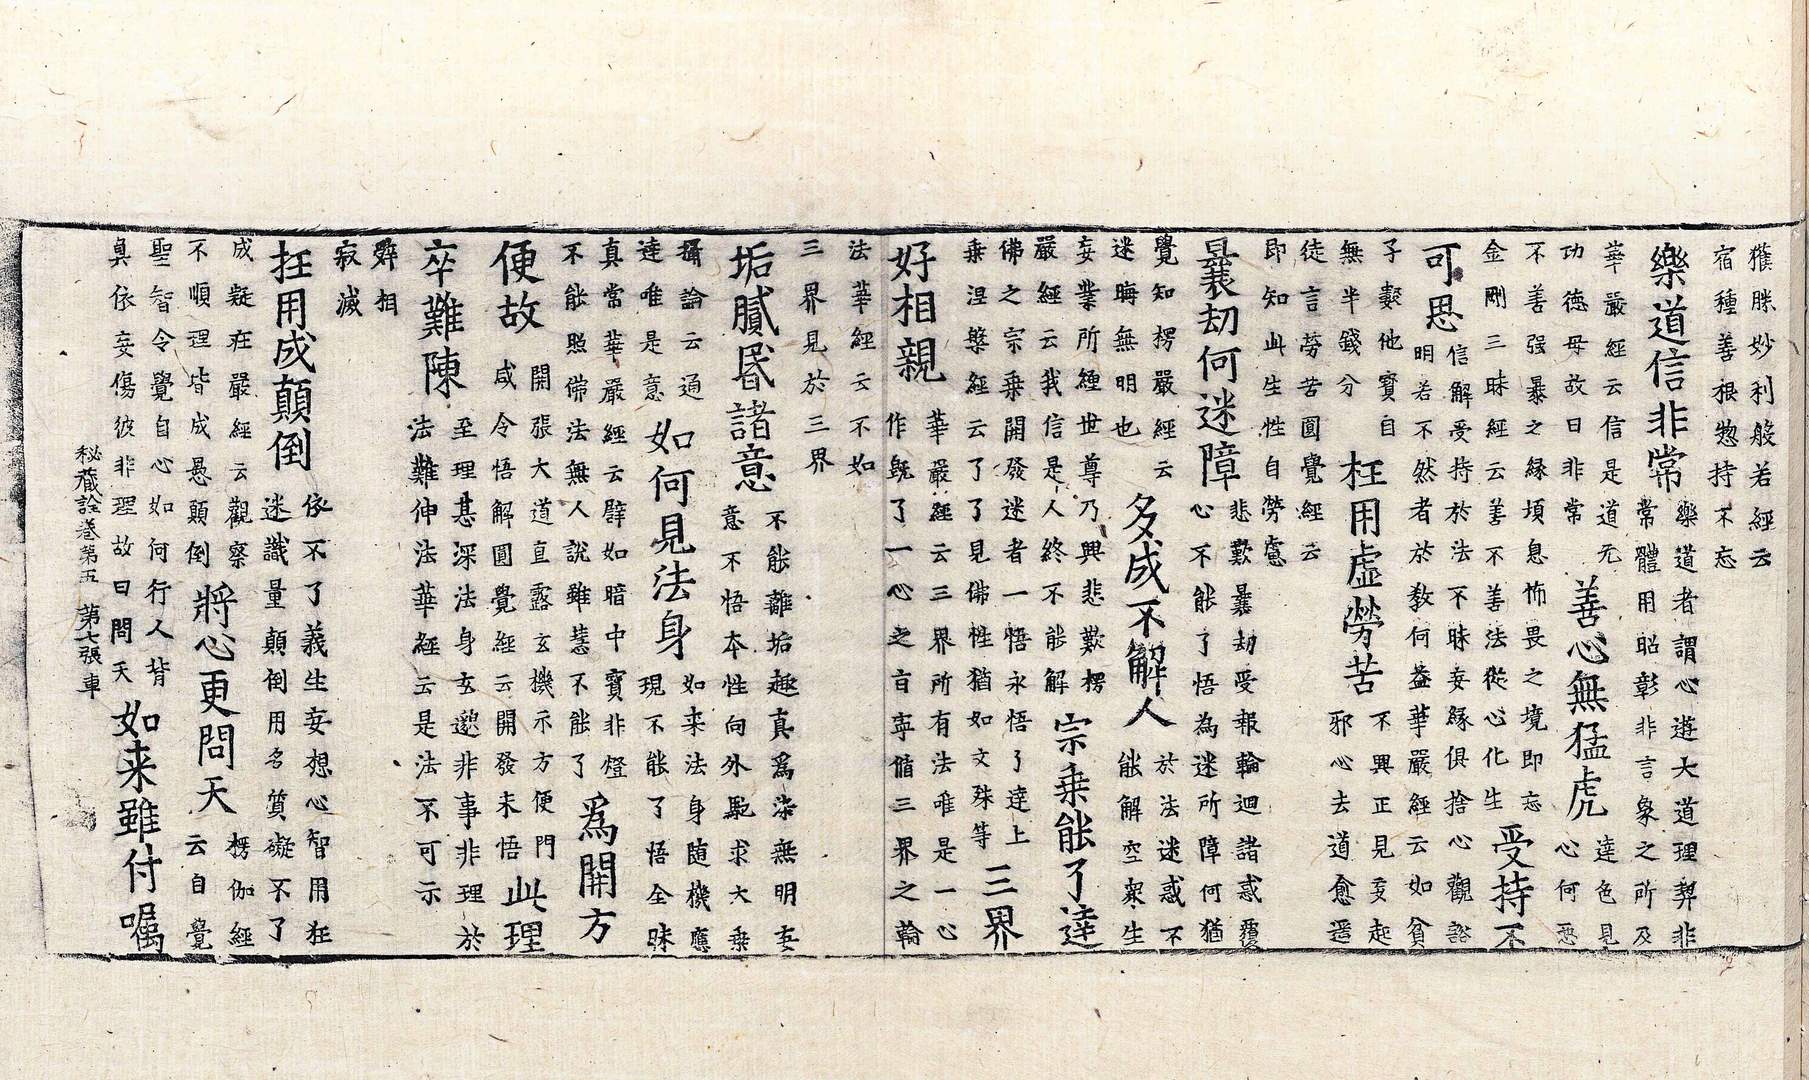 獲勝妙利般若經云
宿種善根惣持不忘
樂道信非常
樂道者謂心遊大道理契非
常體用昭彰非言象之所及
華嚴經云信是道元
功德母故曰非常
善心無猛虎
達色見
心何惡
不善强暴之緣頃息怖畏之境即忘
金剛三昧經云善不善法從心化生
受持不
可思
信解受持於法不昧妄緣俱捨心觀谿
明若不然者於教何益華嚴經云如貧
子數他寶自
無半錢分
枉用虛勞苦
不興正見妄起
邪心去道愈遥
徒言勞苦圓覺經云
即知此生性自勞慮
曩劫何迷障
悲歎曩劫受報輪迴諸惑覆
心不能了悟為迷所障何猶
覺知楞嚴經云
迷晦無明也
多成不解人
於法迷惑不
能解空衆生
妄業所纏世尊乃興悲歎楞
嚴經云我信是人終不能解
宗乗能了達
佛之宗乗開發迷者一悟永悟了達上
乗涅槃經云了了見佛性猶如文殊等
三界
好相親
華嚴經云三界所有法唯是一心
作既了一心之言寧脩三界之輪
法華經云不如
三界見於三界
垢膩昬諸意
不能離垢趣真為染無明妄
意不悟本性向外馳求大乗
攝論云通
達唯是意
如何見法身
如来法身随機應
現不能了悟全昧
真當華嚴經云譬如暗中寶非燈
不能照佛法無人說雖慧不能了
爲開方
便故
開張大道直露玄機示方便門
咸令悟解圓覺經云開發未悟
此理
卒難陳
至理甚深法身玄邈非事非理於
法難伸法華經云是法不可示
辤相
寂滅
抂用成顛倒
依不了義生妄想心智用狂
迷識量顛倒用名質礙不了
成疑在嚴經云觀察
不順理皆成愚顛倒
將心更問天
楞伽經
云自覺
聖智令覺自心如何行人背
真依妄傷彼非理故曰問天
如来雖付囑
秘藏詮卷第五 第七張 車